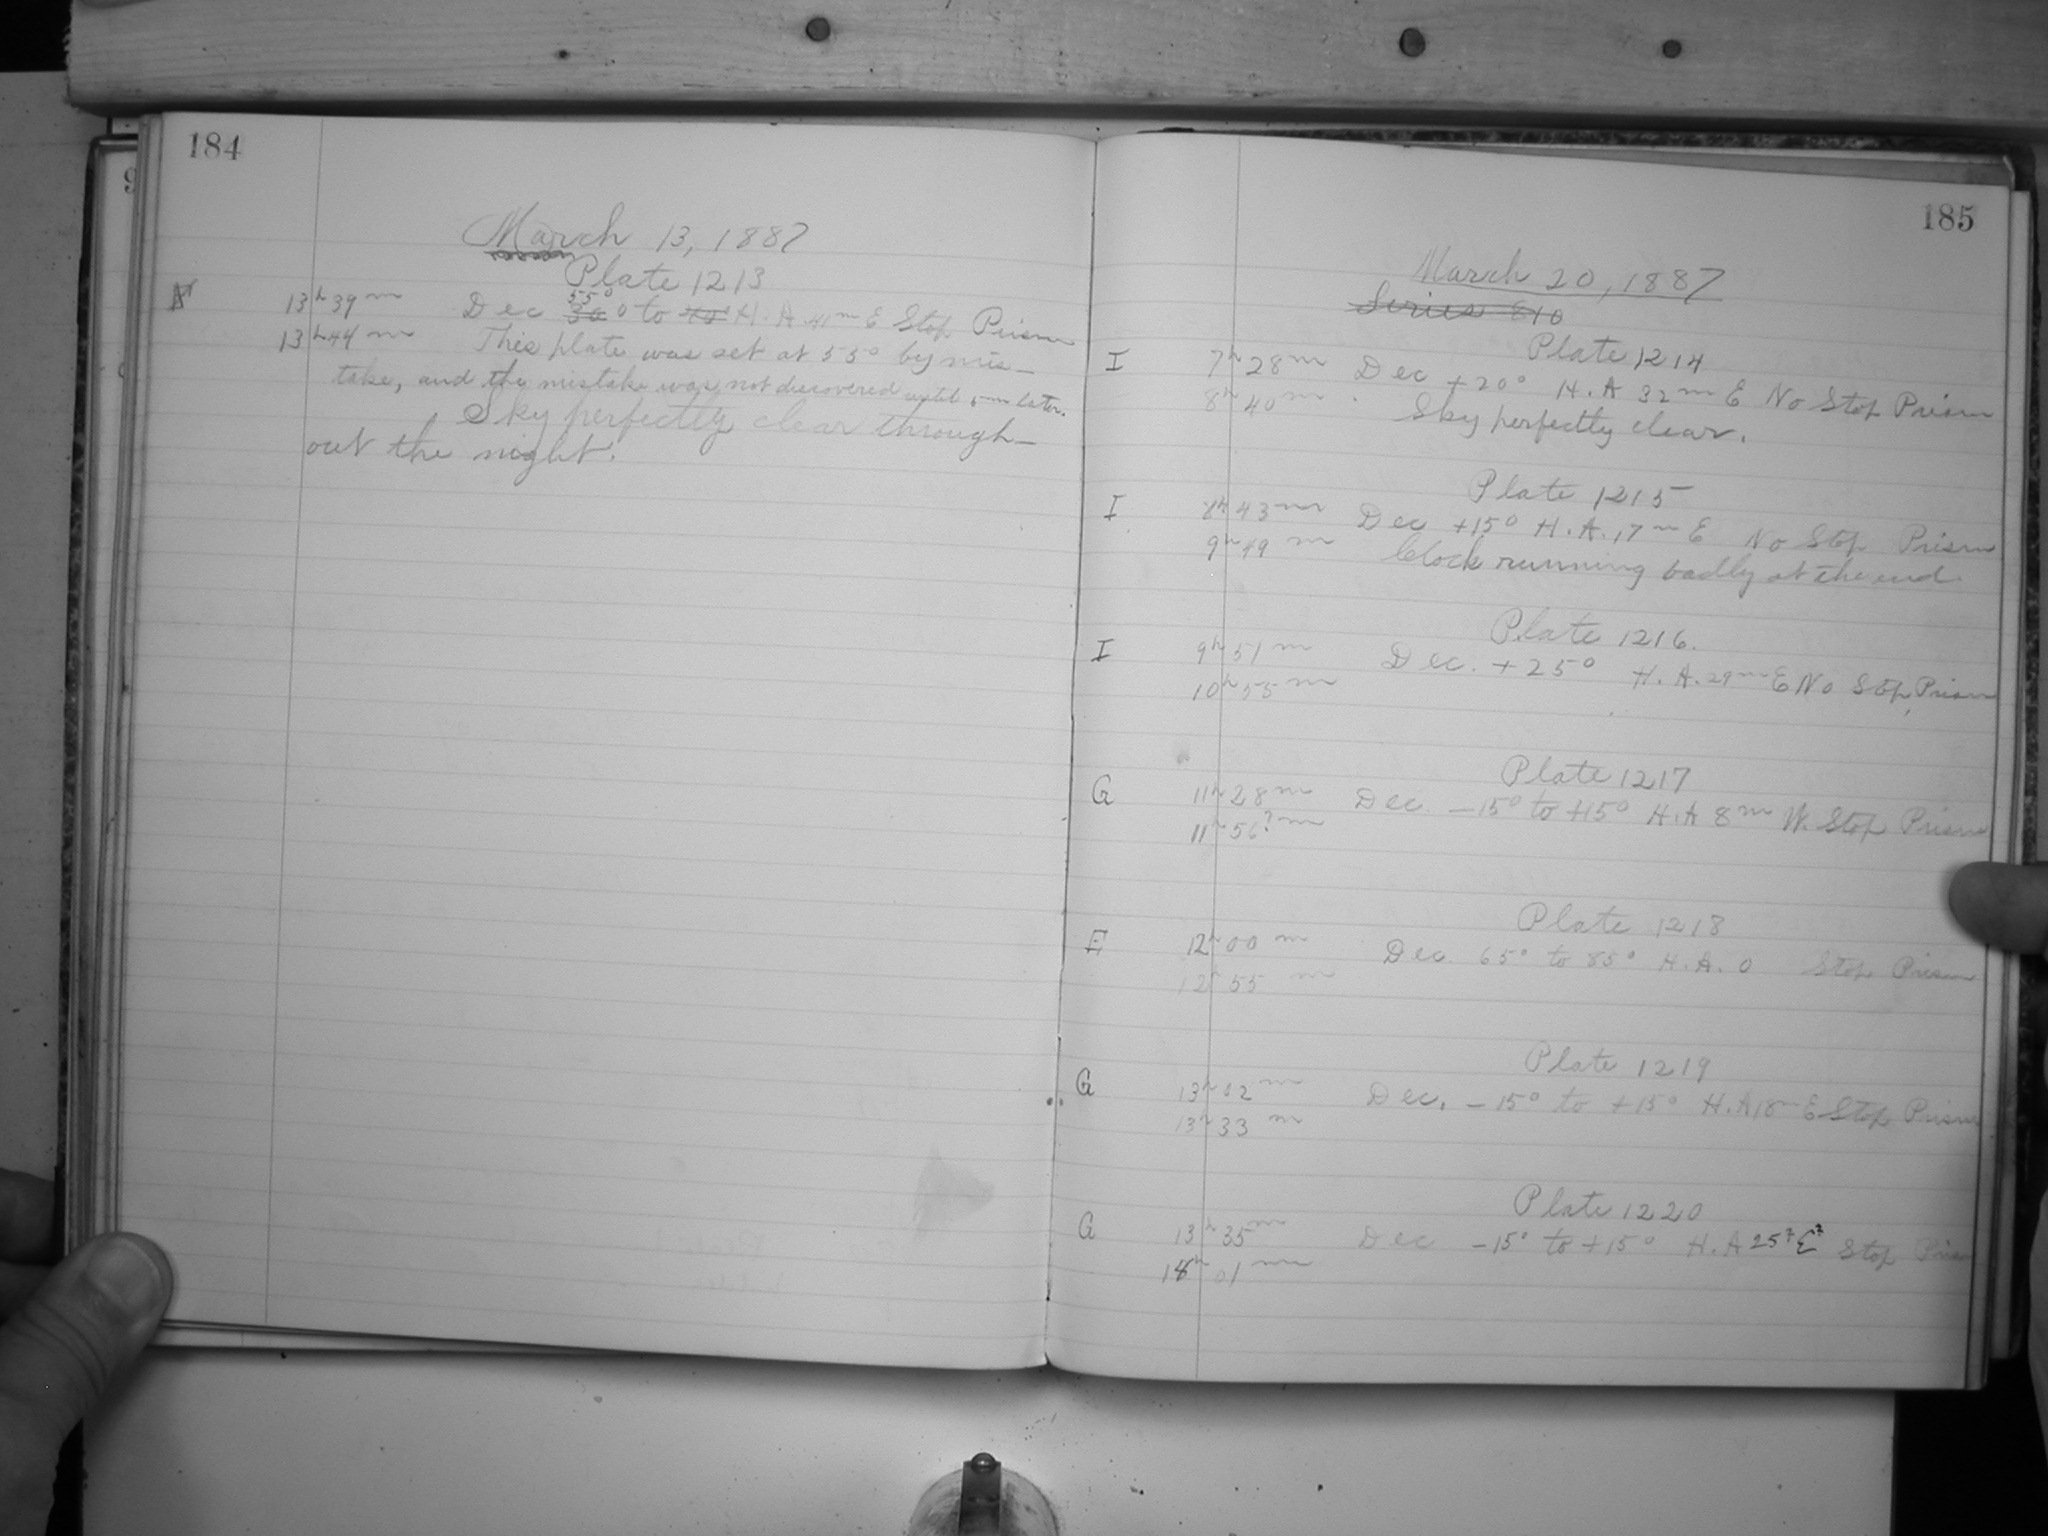 184
March 13, 1887
Plate 1213
13h 39m Dec 30° 55° to 40° H.A. 41m E Stop Prism
13h 44m This plate was set at 55° by mis-
take, and the mistake was not discovered until 5m later.
Sky perfectly clear through-
out the night.
185
March 20, 1887
Series 810
Plate 1214
I 7h 28m Dec +20° H.A 32m E No Stop Prism
8h 40m Sky perfectly clear.
Plate 1215
I 8h 43m Dec +15° H.A. 17m E No Stop Prism
9h 49m Clock running badly at the end
Plate 1216.
I 9h 51m Dec. +25° H.A. 29m E No Stop, Prism
10h 55m
Plate 1217
G 11h 28m Dec. -15° to +15° H.A 8m W. Stop Prism
11h 56?m
Plate 1218
E 12h 00m Dec 65° to 85° H.A. 0 Stop Prism
12h 55m
Plate 1219
G 13h 02m Dec. -15° to +15° H.A 18m E Stop Prism
13h 33m
Plate 1220
G 13h 35m Dec -15° to +15° H.A 25? E? Stop Prism
18h 01m